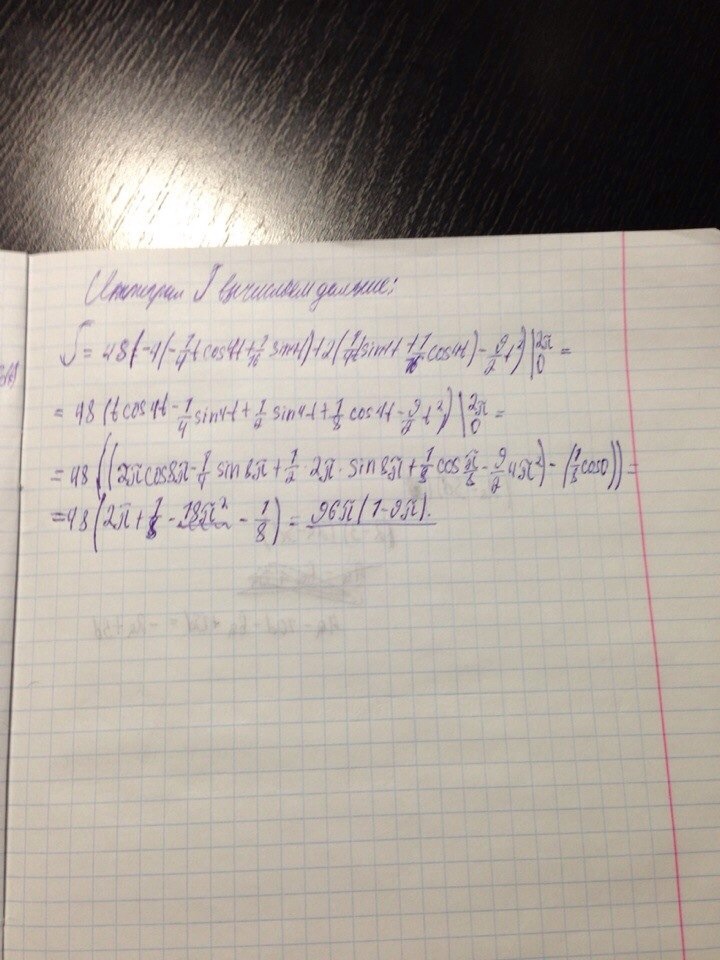 Интеграл I вычисляем дальше:
J = 48(-4(-1/4 t cos4t + 1/16 sin4t) + 2(1/4 t sin4t + 1/16 cos4t) - 9/2 t²)|₀^2π =
= 48(t cos4t - 1/4 sin4t + 1/2 sin4t + 1/8 cos4t - 9/2 t²)|₀^2π =
= 48((2π cos8π - 1/4 sin8π + 1/2 · 2π · sin8π + 1/8 cos π/8 - 9/2 4π²) - (1/8 cos0)) =
= 48(2π + 1/8 - 18π² - 1/8) = 96π(1-9π).